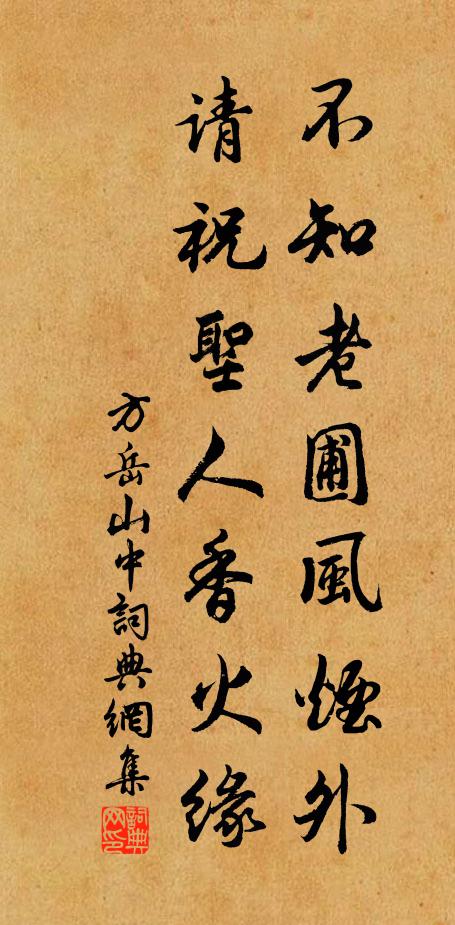 不知老圃風煙外
请祝聖人香火缘
方岳山中詞典網集
詞典网印